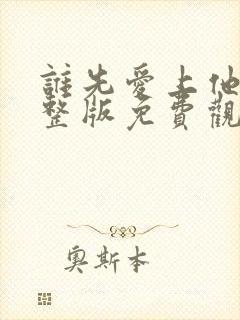 誰先愛上他
整版免費觀
奧斯本